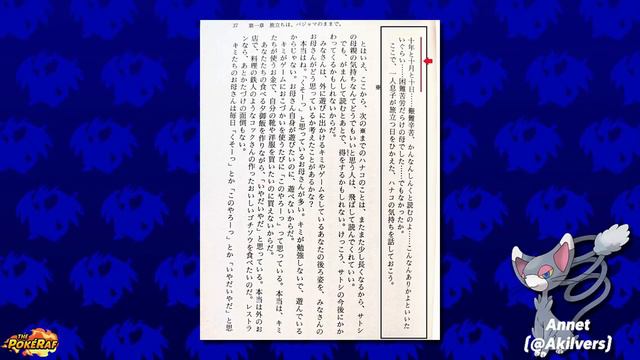 37　第一章　旅立ちは、パジャマのままで。
十年と十月と十日……艱難辛苦、かんなんしんくと読むのよ……こんなんありかよといいた
いぐらい……困難苦労だらけの母でした……でもなかったか。
ここで、一人息子が旅立つ日をひかえた、ハナコの気持ちを話しておこう。
※
とはいえ、ここから、次の※までのハナコのことは、またまた少し長くなるから、サトシ
の母親の気持ちなんてどうでもいいと思う人は、飛ばして読んでくれていい。
でも、がまんして読むとあとで、得をするかもしれない。けっこう、サトシの今後にかか
わってくるかもしれないからだ。
みなさんは、外に遊びに出かけるキミやゲームをしているあなたの後ろ姿を、みなさんの
お母さんがどう思っているか考えたことがあるかな？
本当はね、「くそーっ」と思っているお母さんが多い。キミが勉強しないで、遊んでいる
からじゃない。お母さん自身が遊びたいのに、遊べないからだ。
キミがゲームにおこづかいを使うたびに「このやろーっ」って思っている。本当は、キミ
たちが使うお金で、自分の靴や洋服を買いたいのに買えないからだ。
あなたたちの食べる夕御飯を作りながら、「いやだいやだ」と思っている。本当は外のお
店で、料理の鉄人のようなコックさんの作ったおいしいゴチソウを食べたいのだ。レストラ
ンなら、あとかたづけの面倒もない。
キミたちのお母さんは毎日「くそーっ」とか「このやろーっ」とか「いやだいやだ」と思
THE POKÉRAF
Annet
(@Akilvers)